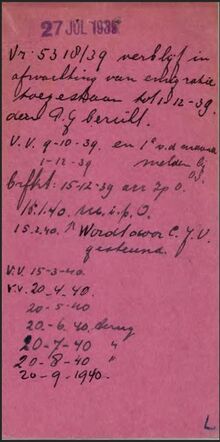 27 JUL 1939
Vr: 5318/39 verblijf in
afwachting van emigratie
toegestaan tot 1-12-39.
door P.G. beruil.
V.V. 9-10-39. en 1e v.d. maand
1-12-39 melden bij
15-12-39 2p O.
15.1.40. O.
15.2.40. Wordt door C.J.V.
gesteund.
V.V. 15-3-40.
V.V. 20-4-40.
20-5-40
20-6-40, terug
20-7-40 "
20-8-40 "
20-9-1940.
L